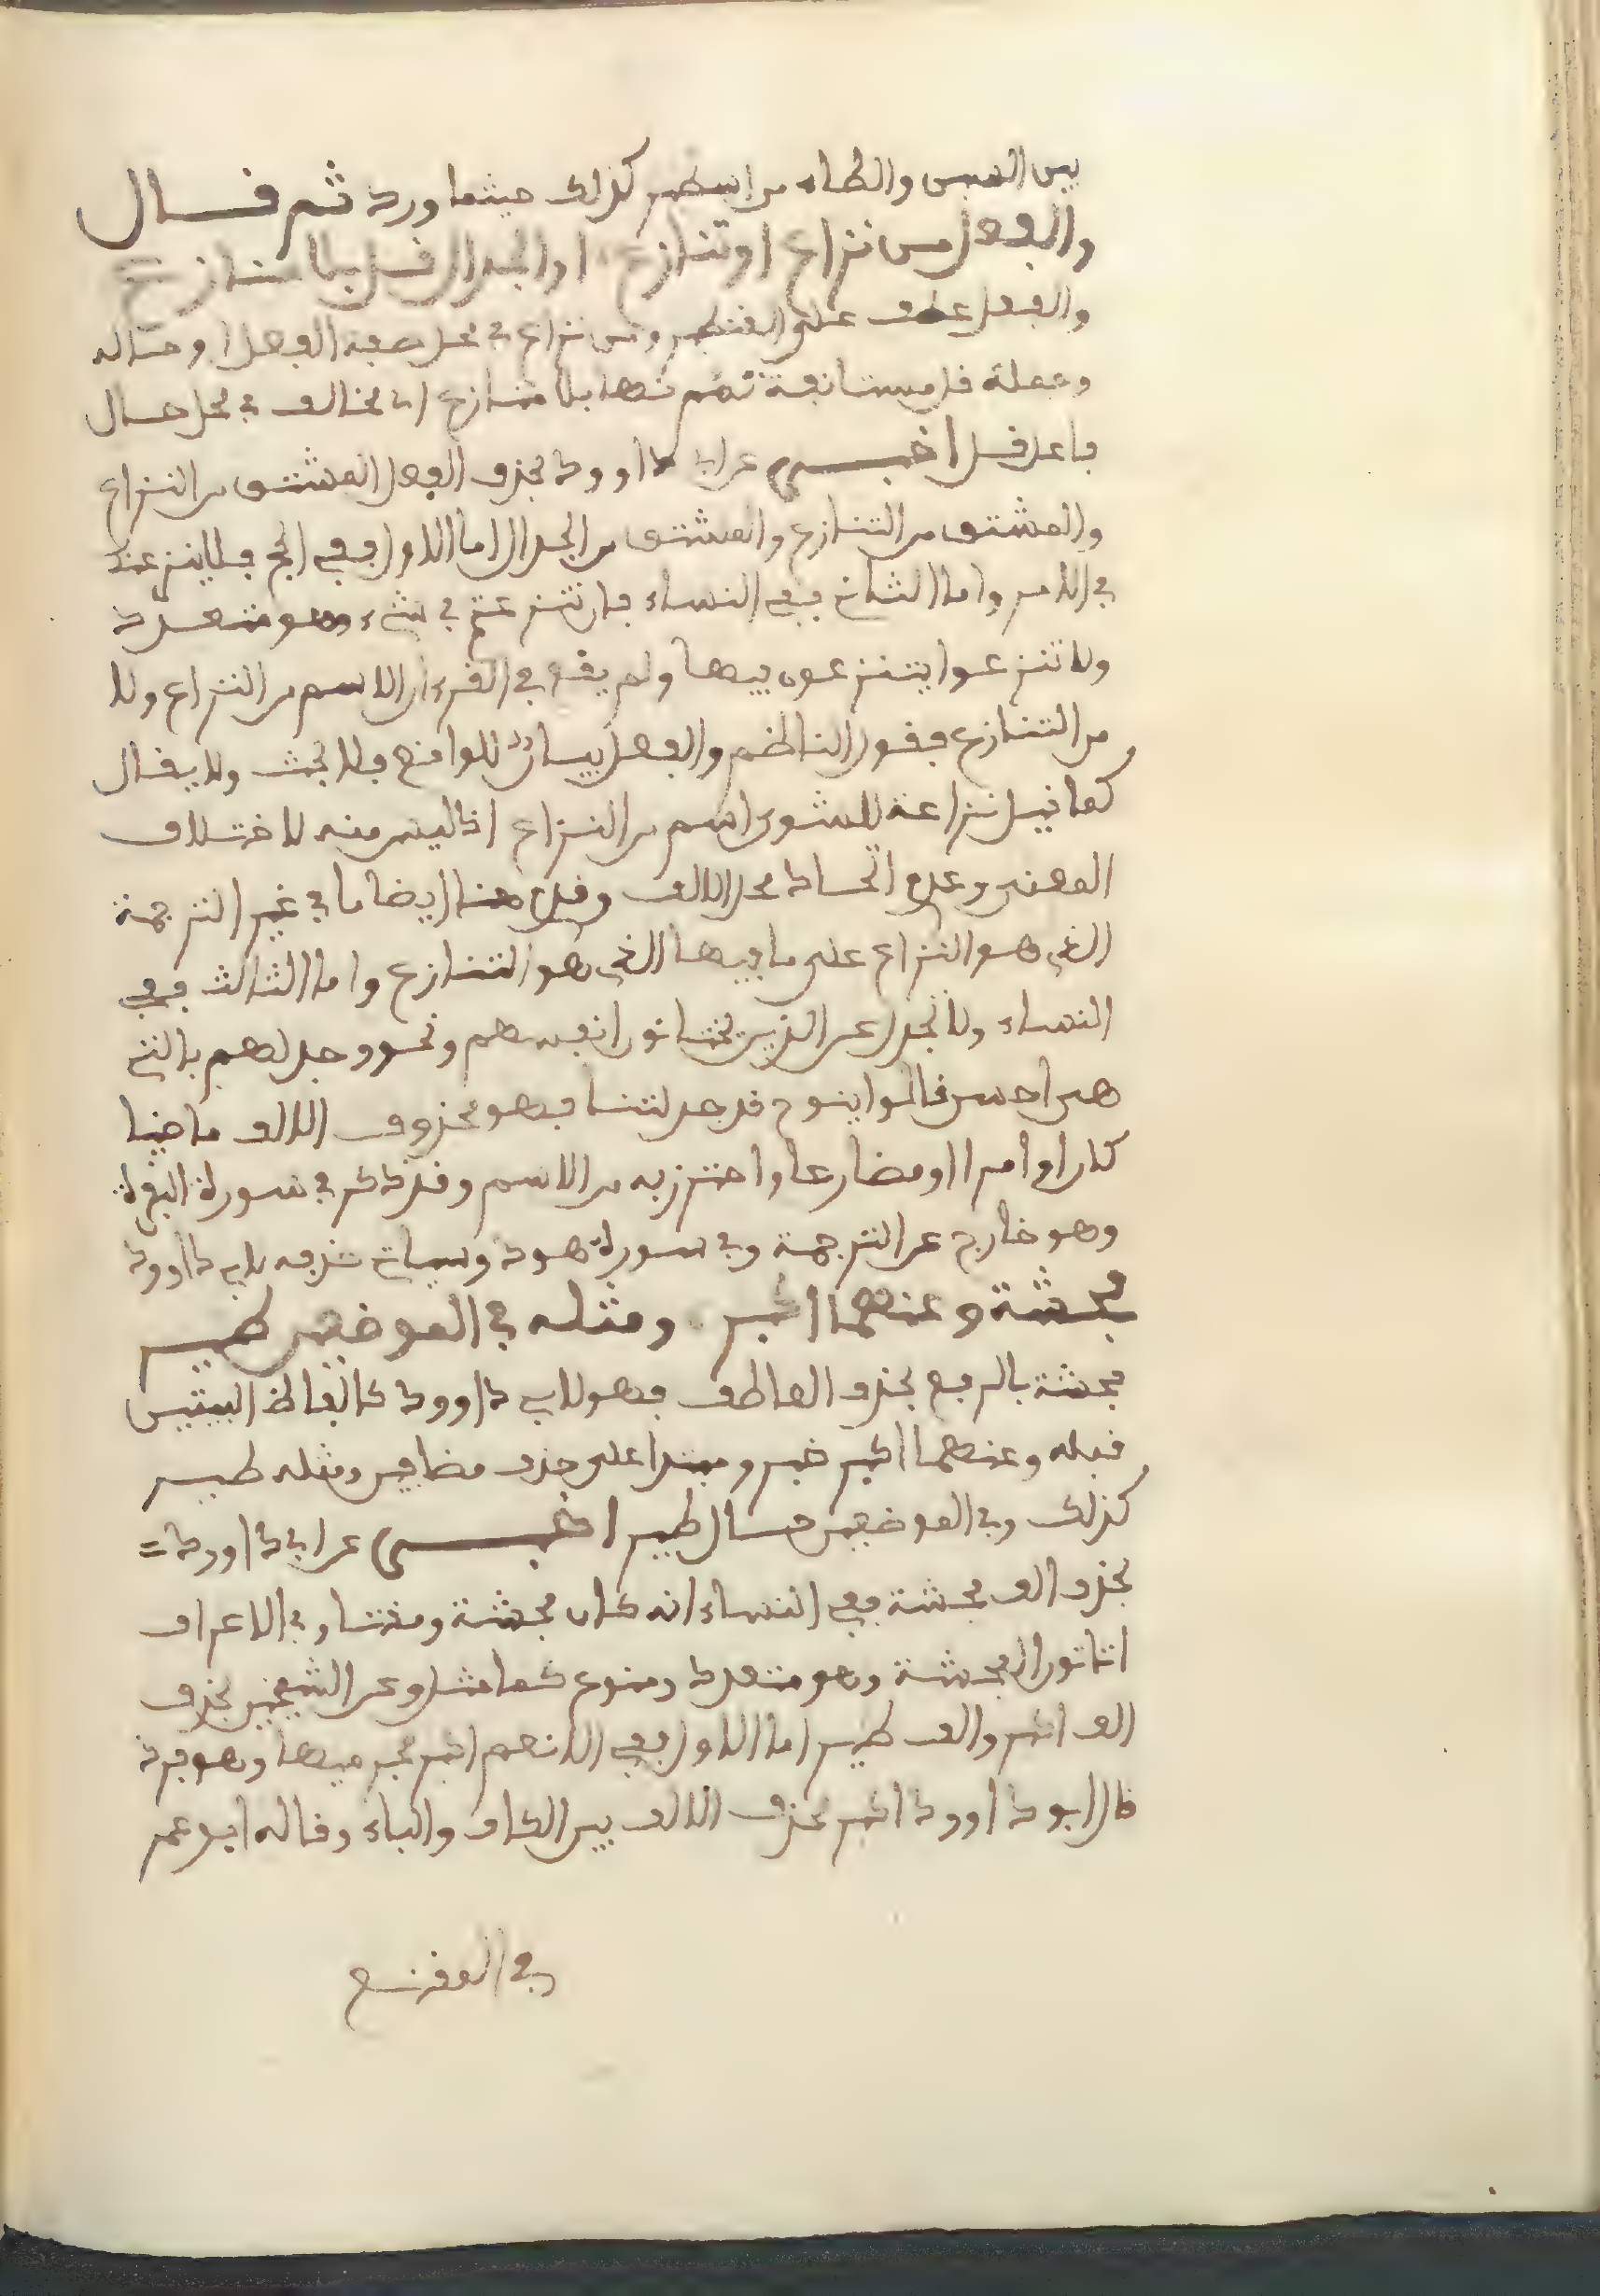 بين السين والطاء من اسطير كذلك حيثما ورد ثم قال
والفعل من نزاع او تنازع او الجدال قل بلا منازع
والفعل عطف على القنطير ومن نزاع في محل صفة الفعل او حاله
وجملة قل مستانفة تمم نصها بلا منازع اي مخالف في محل حال
فاعل قل اخبر عن ابي داوود بحذف الفعل المشتق من النزاع
والمشتق من التنازع والمشتق من الجدال اما الاول ففي الحج فلا ينزعنك
في الامر واما الثاني ففي النساء فان تنزعتم في شيء وهو متعدد
ولا تنزعوا يتنزعون فيها ولم يقع في القرءان الاسم من النزاع ولا
من التنازع فقول الناظم والفعل بيان للواقع فلا بحث ولا يقال
كما قيل نزاعة للشوى اسم من النزاع اذ ليس منه لاختلاف
المعنى وعدم اتحاد محل الالف وقدم هنا ايضا ما في غير الترجمة
الذي هو النزاع على ما فيها الذي هو التنازع واما الثالث ففي
النساء ولا تجدل عن الذين يختانون انفسهم ونحو وجدلهم بالتي
هي احسن قالوا ينوح قد جدلتنا فهو محذوف الالف ماضيا
كان او امرا او مضارعا واحترز به من الاسم وقد ذكر في سورة البقرة
وهو خارج عن الترجمة وفي سورة هود وسياتي حذفه لابي داوود
فحشة وعنهما اكبر ومثله في الموضعين طير
فحشة بالرفع بحذف العاطف فهو لابي داوود كالفاظ البيتين
قبله وعنهما اكبر خبر ومبتدا على حذف مضافين ومثله طير
كذلك وفي الموضعين حال طير اخبر عن ابي داوود =
بحذف الف فحشة ففي النساء انه كان فحشة ومقتا وفي الاعراف
اتاتون الفحشة وهو متعدد ومنوع كما مثل وعن الشيخين بحذف
الف اكبر والف طير اما الاول ففي الانعم اكبر مجرميها وهو فرد
قال ابو داوود اكبر بحذف الالف بين الكاف والباء وقاله ابو عمر
في المقنع